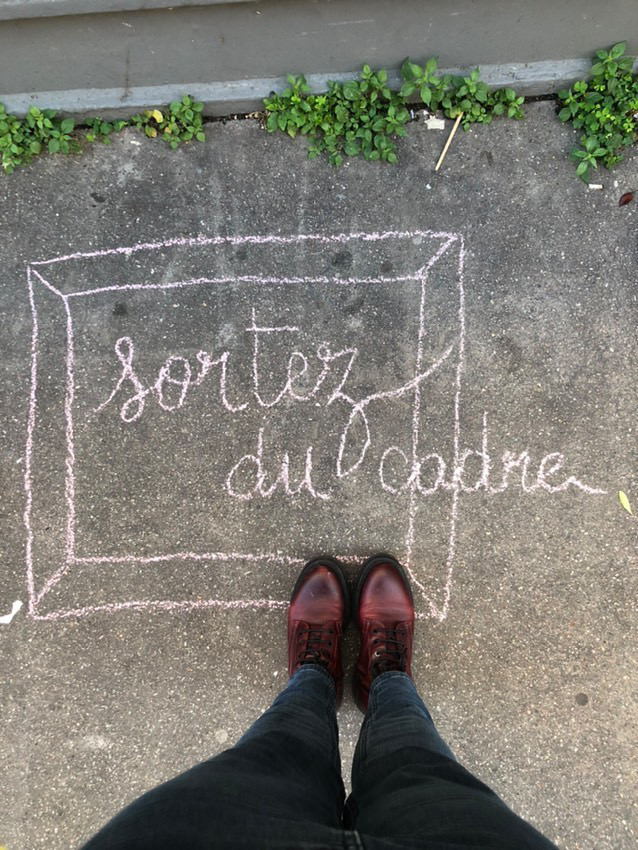 sortez
du cadre